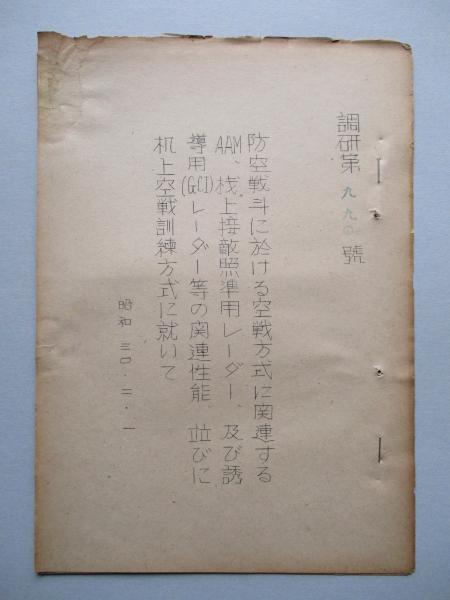 調研第九九〇號
防空戦斗に於ける空戦方式に関連する
AAM、桟上接敵照準用レーダー、及び誘
導用(GCI)レーダー等の関連性能、並びに
机上空戦訓練方式に就いて
昭和三〇.二.一